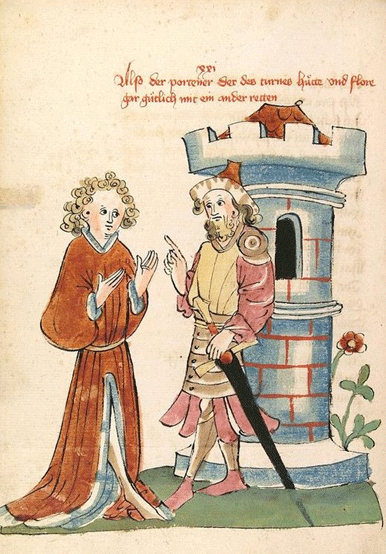 xxi
Also der portener der des turnes hütte vnd flore
gar gütlich mit ein ander retten